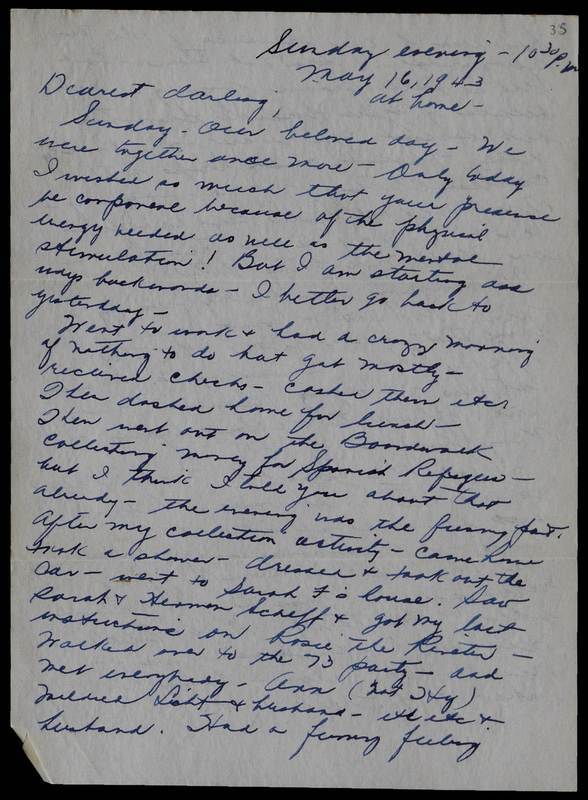 35
Sunday evening - 10 30 P.M
May 16, 1943
at home -
Dearest darling,
Sunday - Our beloved day - We
were together once more - Only today
I wished so much that your presence
be corporeal because of the physical
energy needed as well as the mental
stimulation! But I am starting
ways backwards - I better go back to
yesterday -
Went to work & had a crazy morning
of nothing to do but gab mostly -
received checks - cashed them etc
Then dashed home for lunch -
Then went out on the Boardwalk
collecting money for Spanish Refugees -
but I think I told you about that
already - the evening was the funny part.
After my collection activity - came home
took a shower - dressed & took out the
car - went to Sarah F's house. Saw
Sarah & Herman Scheff & got my last
instructions on Rosie the Riveter -
Walked over to the 73 party - and
met everybody - Ann
Mildred Light & husband - etc etc &
husband. Had a funny feeling